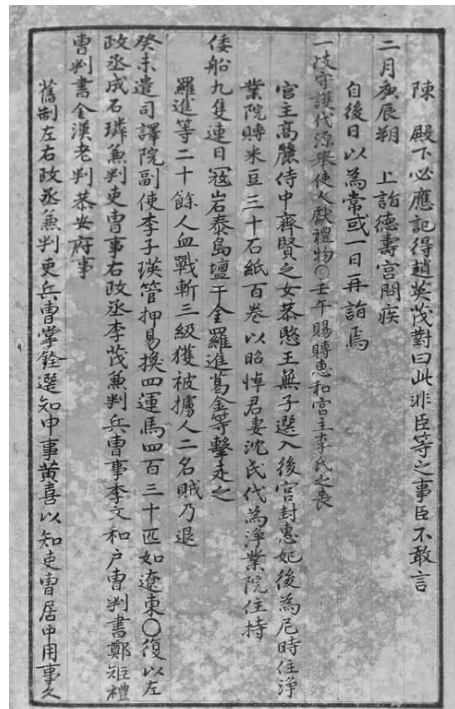 陳　殿下必應記得趙英茂對曰此非臣等之事臣不敢言
二月庚辰朔　上詣德壽宮問疾
自後日以為常或一日再詣焉
一岐守護代源來使人獻禮物○壬午賜賻惠和宮主李氏之喪
宮主高麗侍中齊賢之女恭愍王無子選入後宮封惠妃後為尼時住淨
業院賻米豆三十石紙百卷以昭悼君妻沈氏代為淨業院住持
倭船九隻連日冦岩泰島壇干全羅進葛金等擊走之
羅進等二十餘人血戰斬三級獲被擄人二名賊乃退
癸未遣司譯院副使李子瑛管押易換四運馬四百三十匹如遼東○復以左
政丞成石璘兼判吏曹事右政丞李茂兼判兵曹事李文和戶曹判書鄭矩禮
曹判書金漢老判恭安府事
舊制左右政丞兼判吏兵曹掌銓選知申事黃喜以知吏曹居中用事久